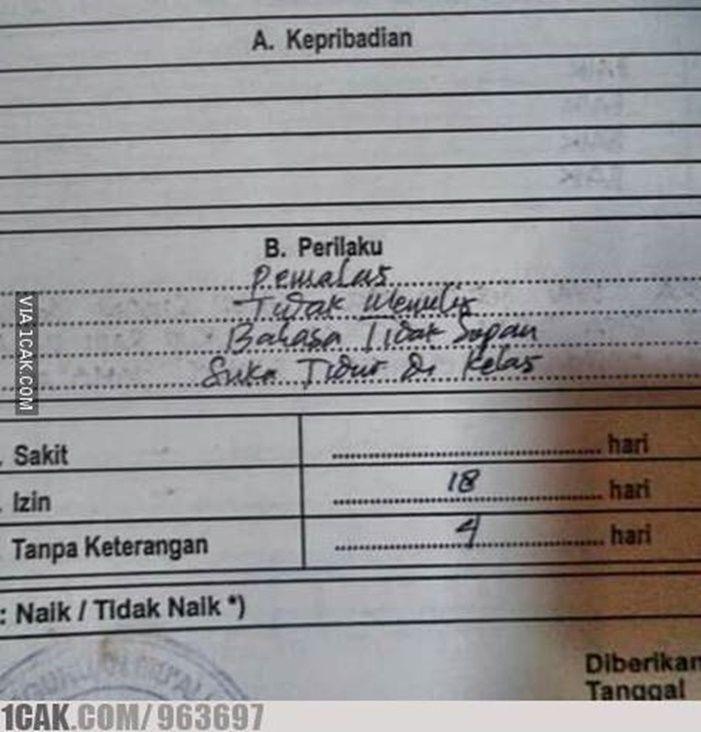 A. Kepribadian
B. Perilaku
Pemalas
Tidak Menulis
Bahasa Tidak Sopan
Suka Tidur di Kelas
. Sakit ........ hari
. Izin 18 hari
Tanpa Keterangan 4 hari
: Naik / Tidak Naik *)
Diberikan
Tanggal
VIA 1CAK.COM
1CAK.COM/963697